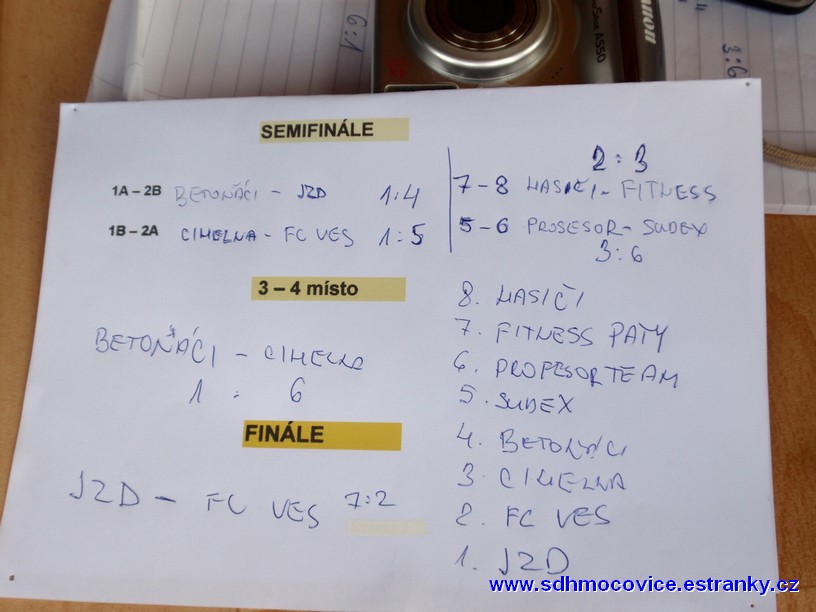 6:1
PowerShot A550
Canon
3:6
SEMIFINÁLE
1A – 2B BETOŇÁCI - JZD 1:4
1B – 2A CIHELNA - FC VES 1:5
3 – 4 místo
BETOŇÁCI - CIHELNA
1 : 6
FINÁLE
JZD - FC VES 7:2
2:3
7-8 HASIČI - FITNESS
5-6 PROSESOR - SUDEX
3:6
8. HASIČI
7. FITNESS PATY
6. PROFESORTEAM
5. SUDEX
4. BETONÁCI
3. CIHELNA
2. FC VES
1. JZD
www.sdhmocovice.estranky.cz